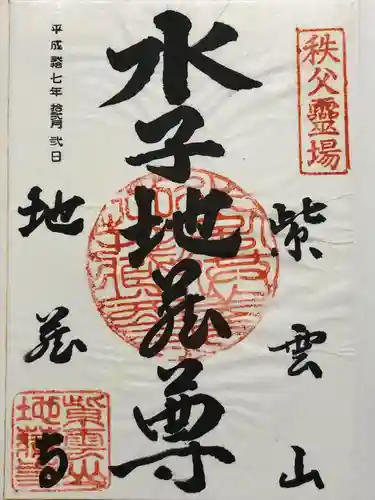 秩父霊場
紫雲山
水子地蔵尊
平成拾七年 拾弐月 弐日
地蔵寺
紫雲山
地蔵寺